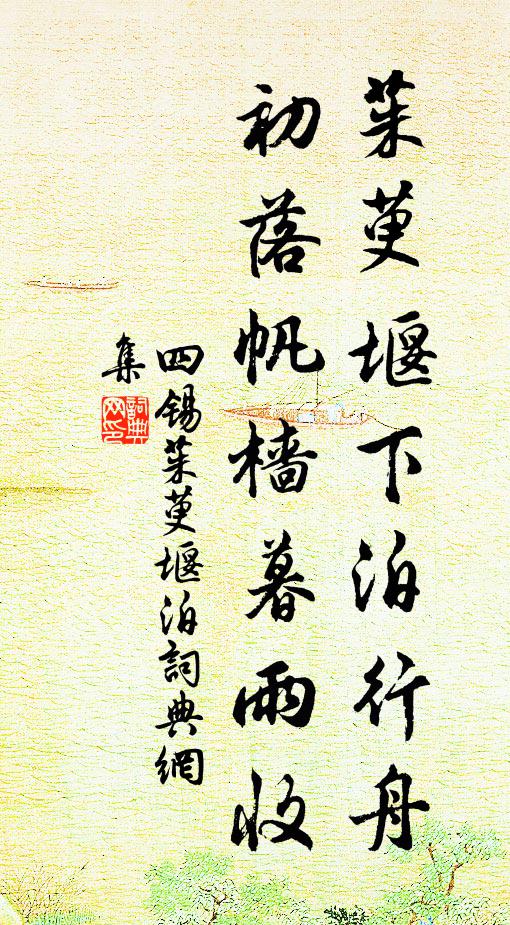 茱萸堰下泊行舟
初落帆檣暮雨收
四锡茱萸堰泊詞典網
集
詞典
网印